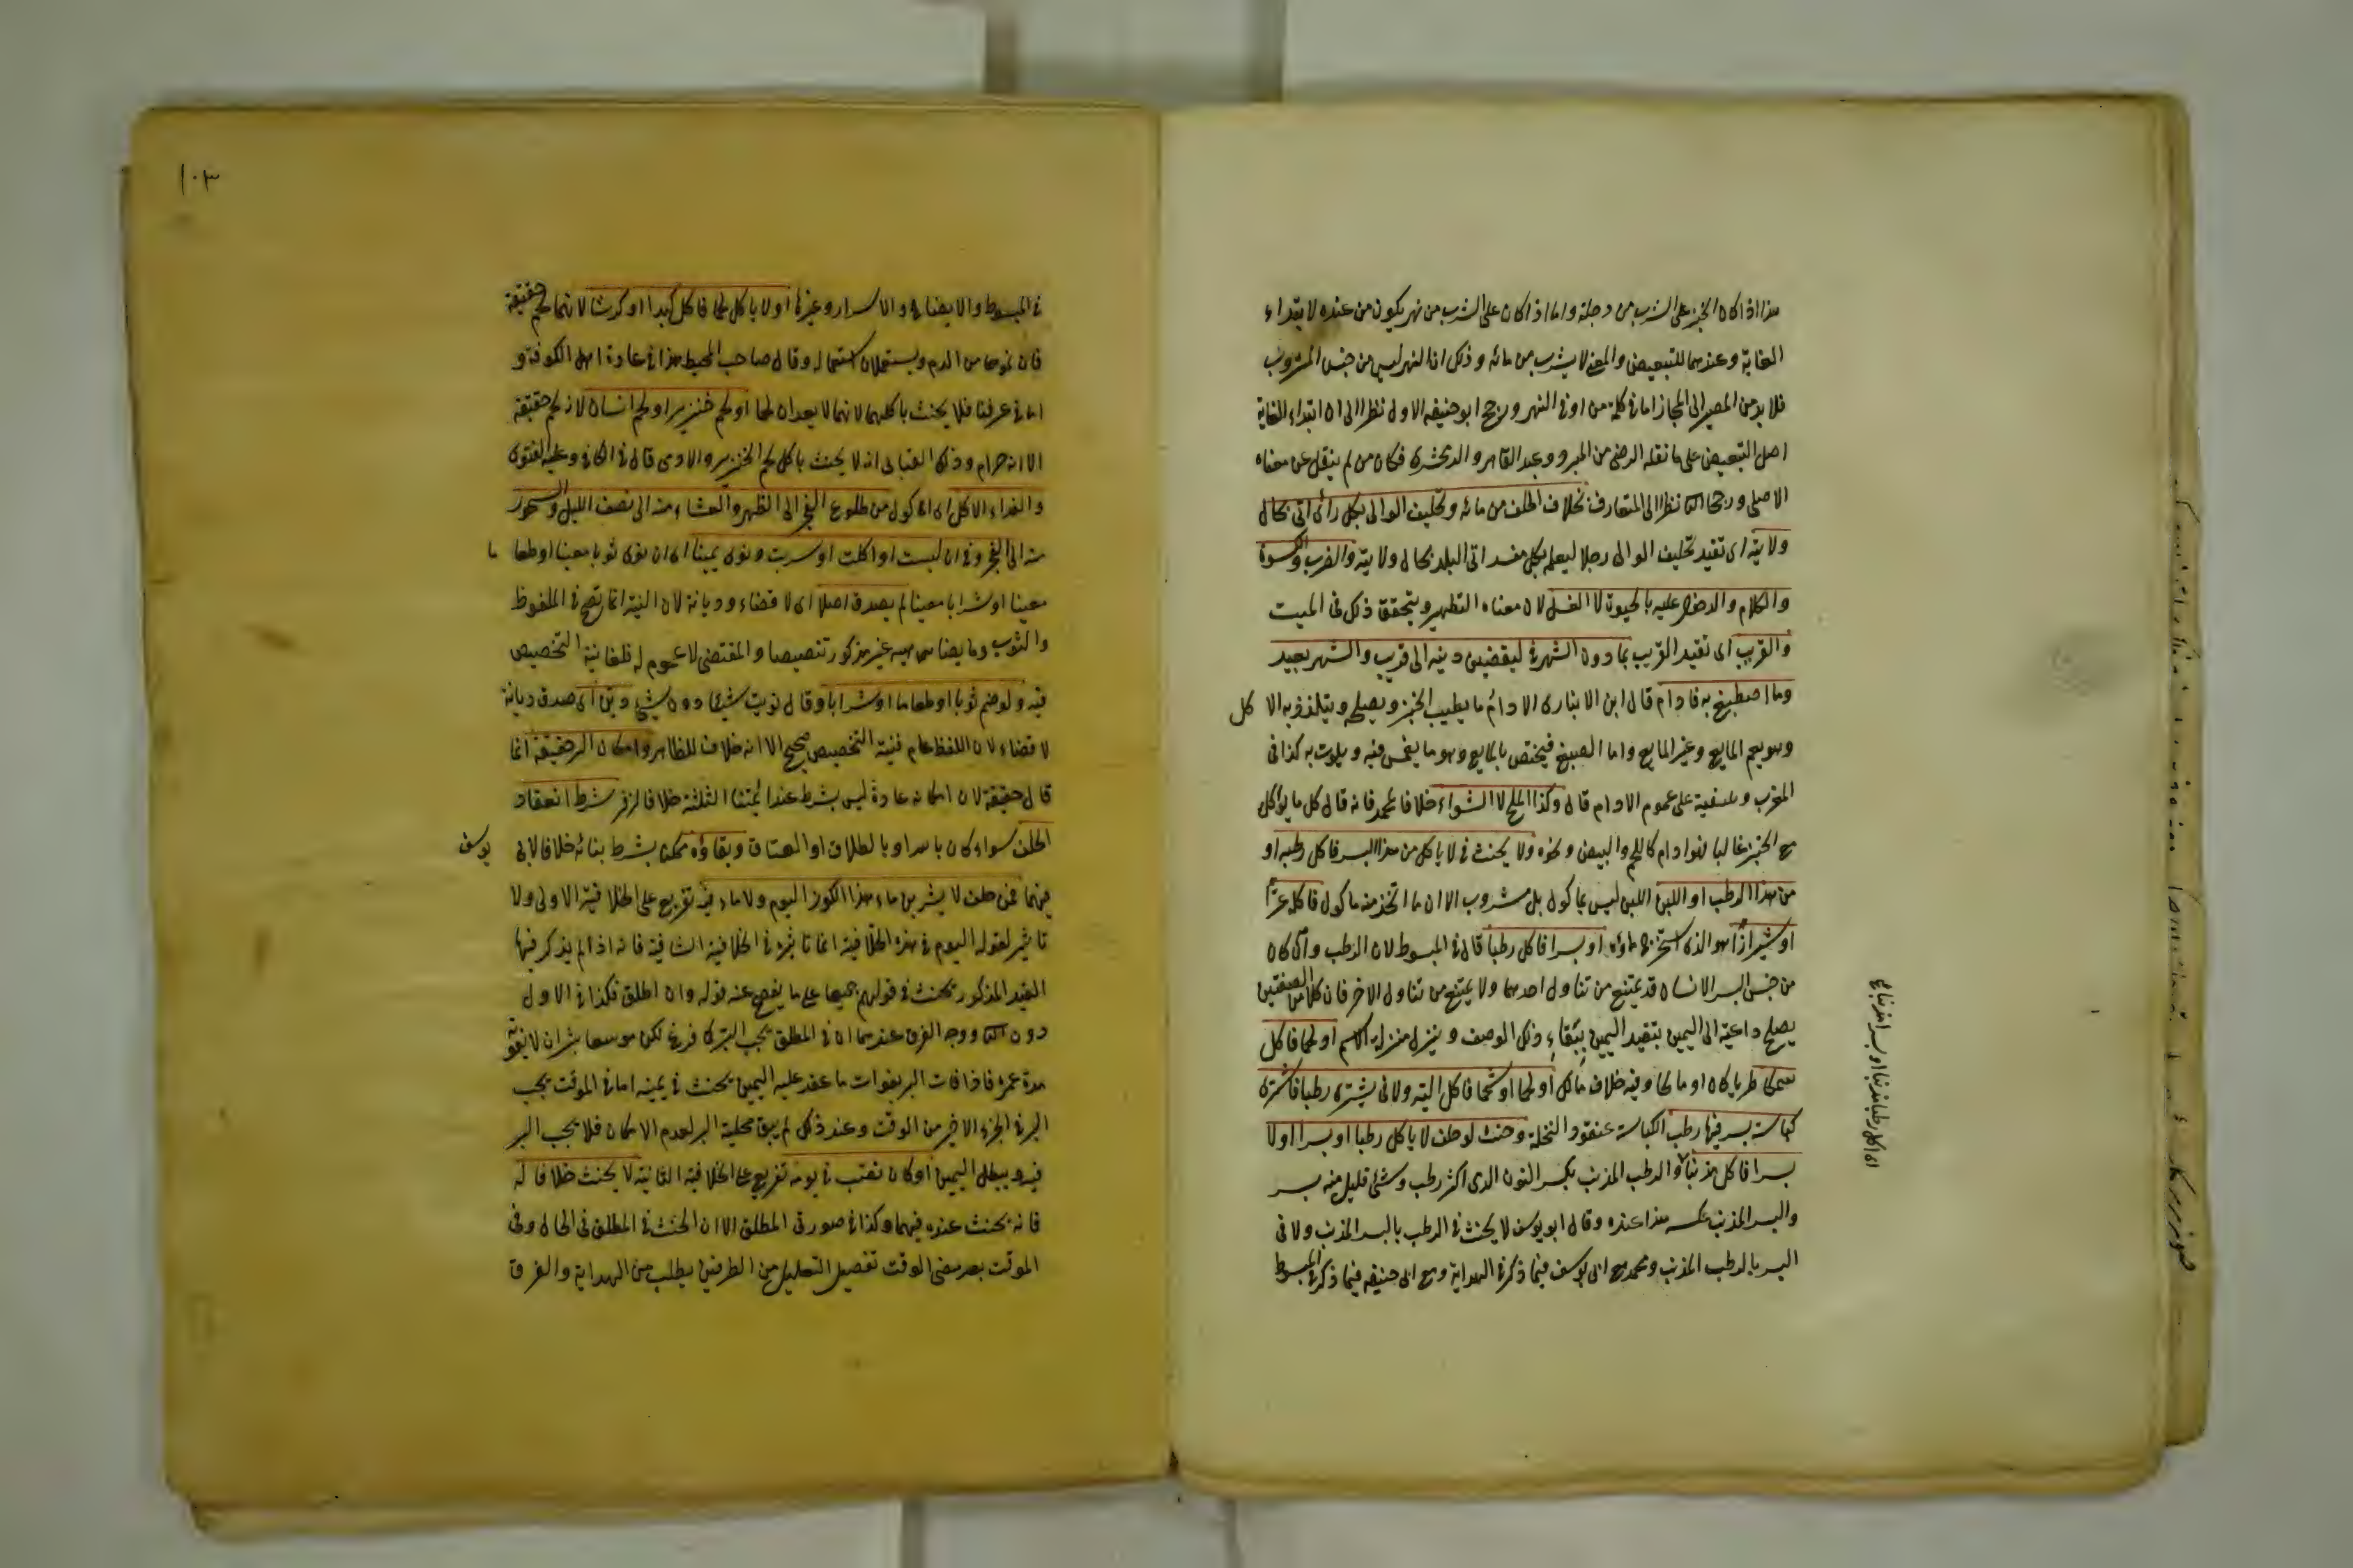 هذا اذا كان الخبز على الشرب من دجلة واما اذا كان على الشرب من نهر يكون من عنده لابتداء
الغاية وعندهما للتبعيض والمعنى لا يشرب من مائه وذلك ان النهر ليس من جنس المشروب
فلا بد من المصير الى المجاز اما في كلمة من او في النهر ورجح ابو حنيفه الاول نظرا الى ان ابتداء الغاية
اصل التبعيض على ما نقله الرضى من المبرد وعبد القاهر والزمخشرى فكان من لم ينقل عن معناه
الاصلى ورجحا الثانى نظرا الى المتعارف بخلاف الحلف من مائه وتحليف الوالى بكل راى اتى بحال
ولايته اى تقيد تحليف الوالى رجلا ليعلم بكل مفسد اتى البلد بحال ولايته والضرب والكسوة
والكلام والدخول عليه بالحيوة لا الغسل لان معناه التطهير ويتحقق ذلك فى الميت
والقرب اى تقيد القريب بما دون الشهر فى ليقضين دينه الى قريب والشهر بعيد
وما اصطبغ به فادام قال ابن الانبارى الادام ما يطيب الخبز ويصلحه ويتلذذ به الاكل
وهو يعم المايع وغير المايع واما الصبغ فيختص بالمايع وهو ما يغمس فيه ويلوث به كذا فى
المغرب و على عموم الادام قال وكذا الملح لا الشواء خلافا لمحمد فانه قال كل ما يؤكل
مع الخبز غالبا فهو ادام كاللحم والبيض ونحوه ولا يحنث فى لا ياكل من هذا البسر فاكل رطبه او
من هذا الرطب او اللبن اللبن ليس بماكول بل مشروب الا ان ما اتخذ منه ماكول فاكله تمرا
او شيرازا هو الذى استخرج ماؤه او بسرا فاكل رطبا قال فى المبسوط لان الرطب وان كان
من جنس البسر الانسان قد يمتنع من تناول احدهما ولا يمتنع من تناول الاخر فان كلا من الصفتين
يصلح داعية الى اليمين بتقيد اليمين ببقاء ذلك الوصف وينزل منزلة الاسم او لحما فاكل
سمكا طريا كان او مالحا وفيه خلاف مالك او لحما او شحما فاكل الية ولا فى يشترى رطبا فاشترى
كباسة بسر فيها رطب الكباسة عنقود النخلة وحنث لو حلف لا ياكل رطبا او بسرا او لا
بسرا فاكل مذنبا والرطب المذنب بكسر النون الذى اكثره رطب وشئ قليل منه بسر
والبسر المذنب عكسه هذا عنده وقال ابو يوسف لا يحنث فى الرطب بالبسر المذنب ولا فى
البسر بالرطب المذنب ومحمد مع ابى يوسف فيما ذكر فى الهداية ومع ابى حنيفه فيما ذكر فى المبسوط
اى اكل رطبا مذنبا او بسرا مذنبا
١٠٣
فى المبسوط والايضاح والاسرار وغيرها او لا ياكل لحما فاكل كبدا او كرشا لانهما لحم حقيقة
فان نموهما من الدم ويستعملان استعماله وقال صاحب المحيط هذا فى عادة اهل الكوفة و
اما فى عرفنا فلا يحنث باكلهما لانهما لا يعدان لحما او لحم خنزير او لحم انسان لانه لحم حقيقة
الا انه حرام وذكر العتابى انه لا يحنث باكل لحم الخنزير والادمى قال فى الكافى وعليه الفتوى
والغداء الاكل اى الماكول من طلوع الفجر الى الظهر والعشاء منه الى نصف الليل والسحور
منه الى الفجر وفى ان لبست او اكلت او شربت ونوى يمينا اى ان نوى ثوبا معينا او طعاما
معينا او شرابا معينا لم يصدق اصلا اى لا قضاء وديانة لان النية انما تصح فى الملفوظ
والثوب وما يضاهيه غير مذكور تنصيصا والمقتضى لا عموم له فلغا نية التخصيص
فيه ولو ضم ثوبا او طعاما او شرابا وقال نويت شيئا دون شئ دين اى صدق ديانة
لا قضاء لان اللفظ عام فنية التخصيص صحيح الا انه خلاف الظاهر وامكان البر حقيقة انما
قال حقيقة لان امكانه عادة ليس بشرط عند ائمتنا الثلثة خلافا لزفر شرط انعقاد
الحلف سواء كان بالله او بالطلاق او العتاق وبقاؤه ممكنا بشرط بنائه خلافا لابى يوسف
فيهما فمن حلف لا يشربن ماء هذا الكوز اليوم ولا ماء فيه تفريع على الخلافية الاولى ولا
تاثير لقوله اليوم فى هذه الخلافية انما تاثيره فى الخلافية الثانية فانه اذا لم يذكر فيها
القيد المذكور يحنث فى قولهم جميعا على ما يفصح عنه قوله وان اطلق فكذا فى الاول
دون الثانى ووجه الفرق عندهما ان فى المطلق يجب البر كما فرغ لكن موسعا بشرط ان لا يفوته
مدة عمره فاذا فات البر بفوات ما عقد عليه اليمين يحنث فى يمينه اما فى الموقت يجب
البر فى الجزء الاخير من الوقت وعند ذلك لم يبق محلية البر لعدم الامكان فلا يجب البر
فيه ويبطل اليمين او كان فصب فى يومه تفريع على الخلافية الثانية لا يحنث خلافا له
فانه يحنث عنده فيهما وكذا فى صورتى المطلق الا ان الحنث فى المطلق فى الحال وفى
الموقت بعد مضى الوقت تفصيل التعليل من الطرفين يطلب من الهداية والفرق